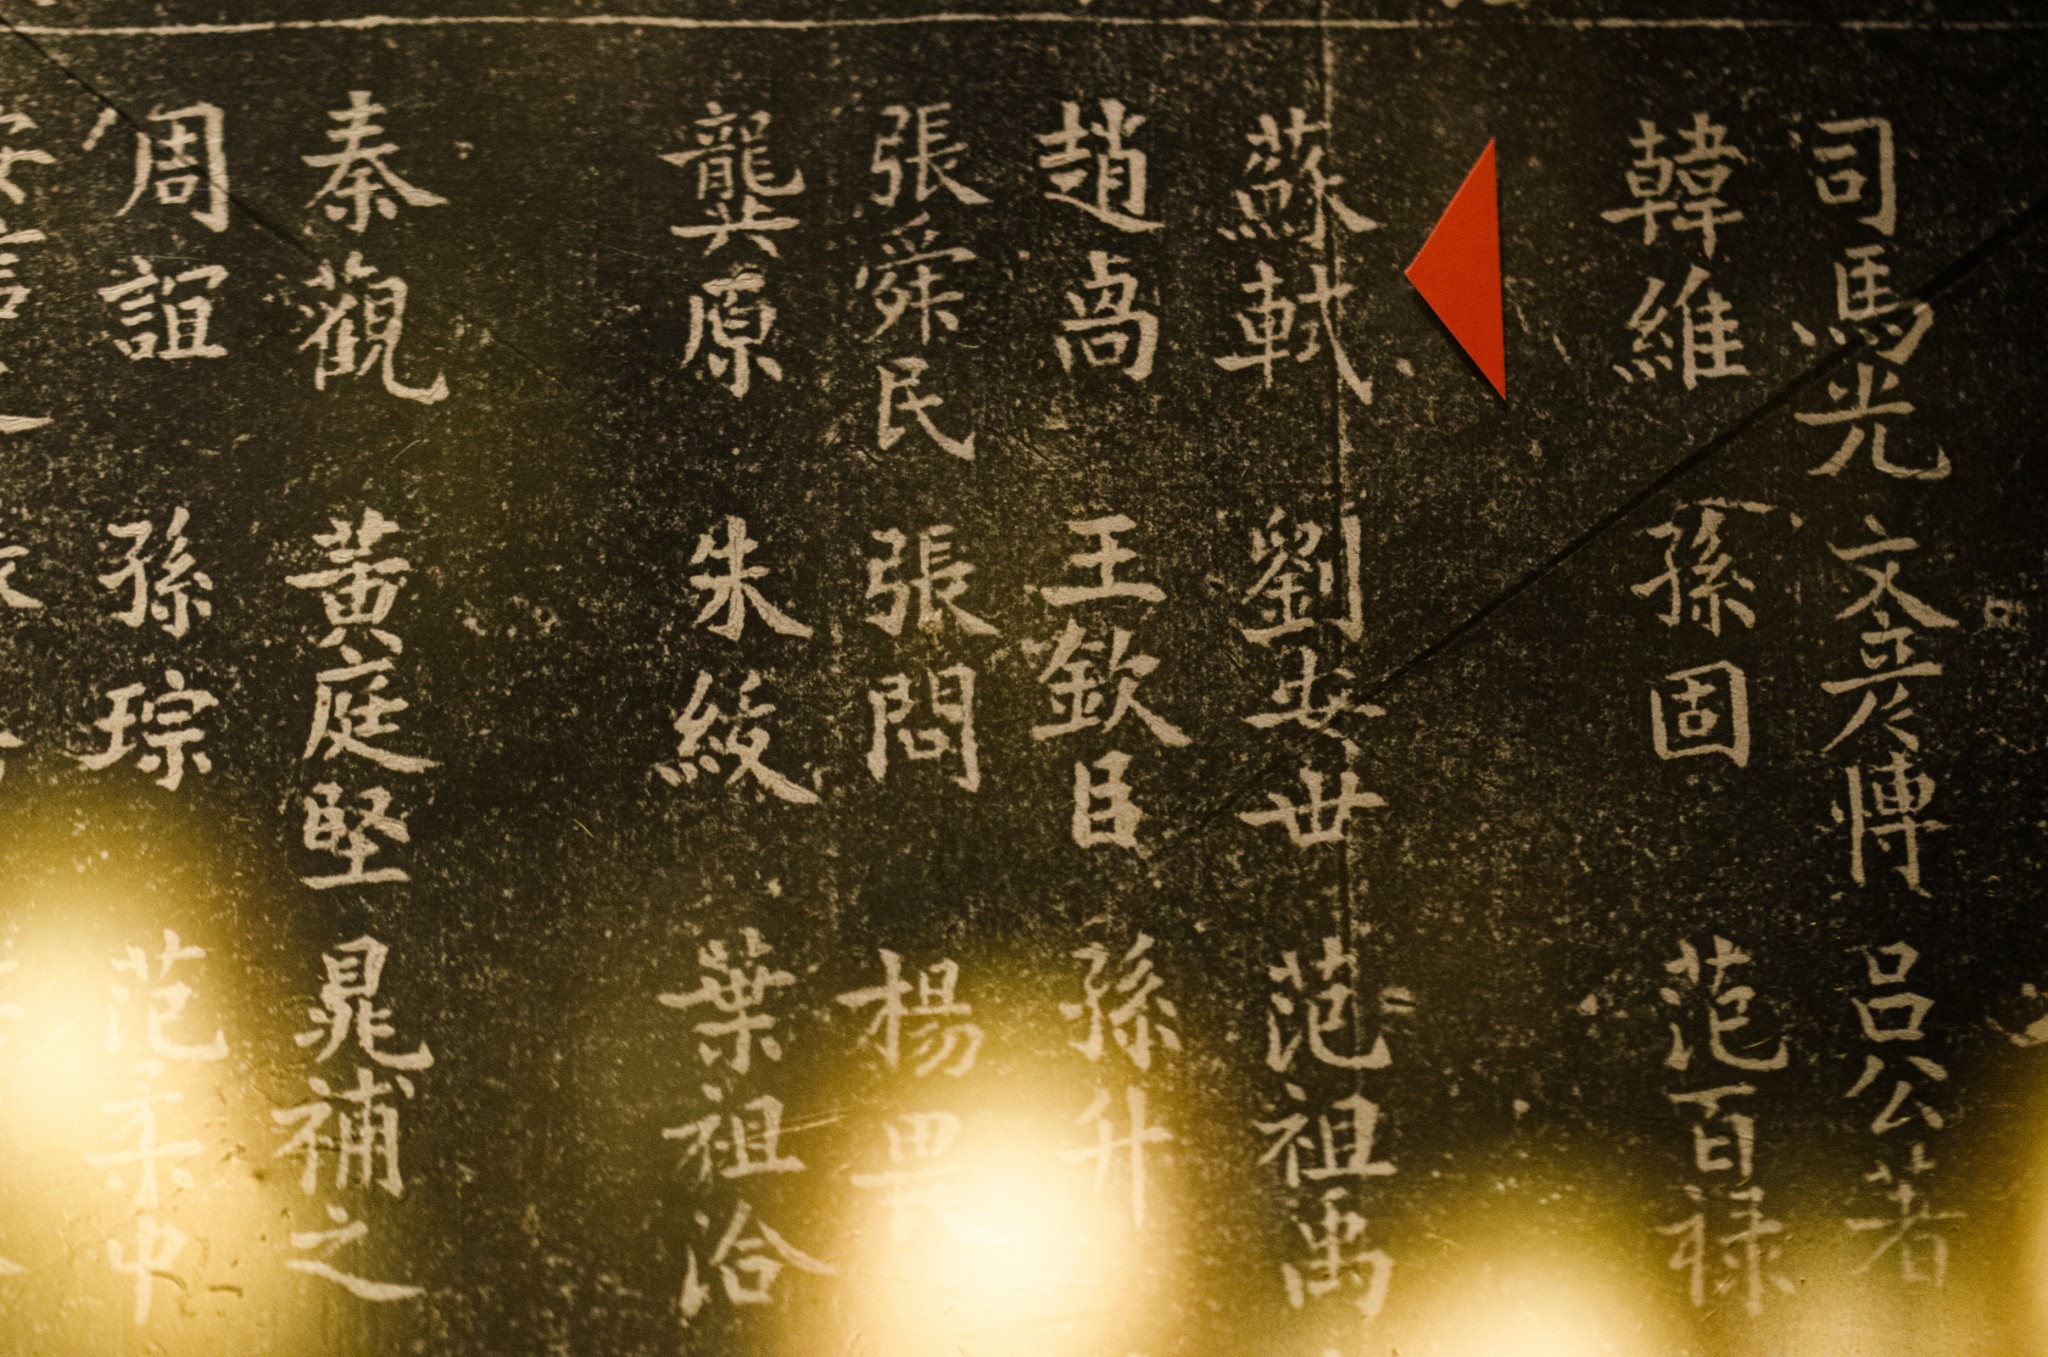 司馬光 文彦博 呂公著
韓維 孫固 范百祿
蘇軾 劉安世 范祖禹
趙卨 王欽臣 孫升
張舜民 張問 楊畏
龔原 朱紱 葉祖洽
秦觀 黃庭堅 晁補之
周誼 孫琮 范柔中